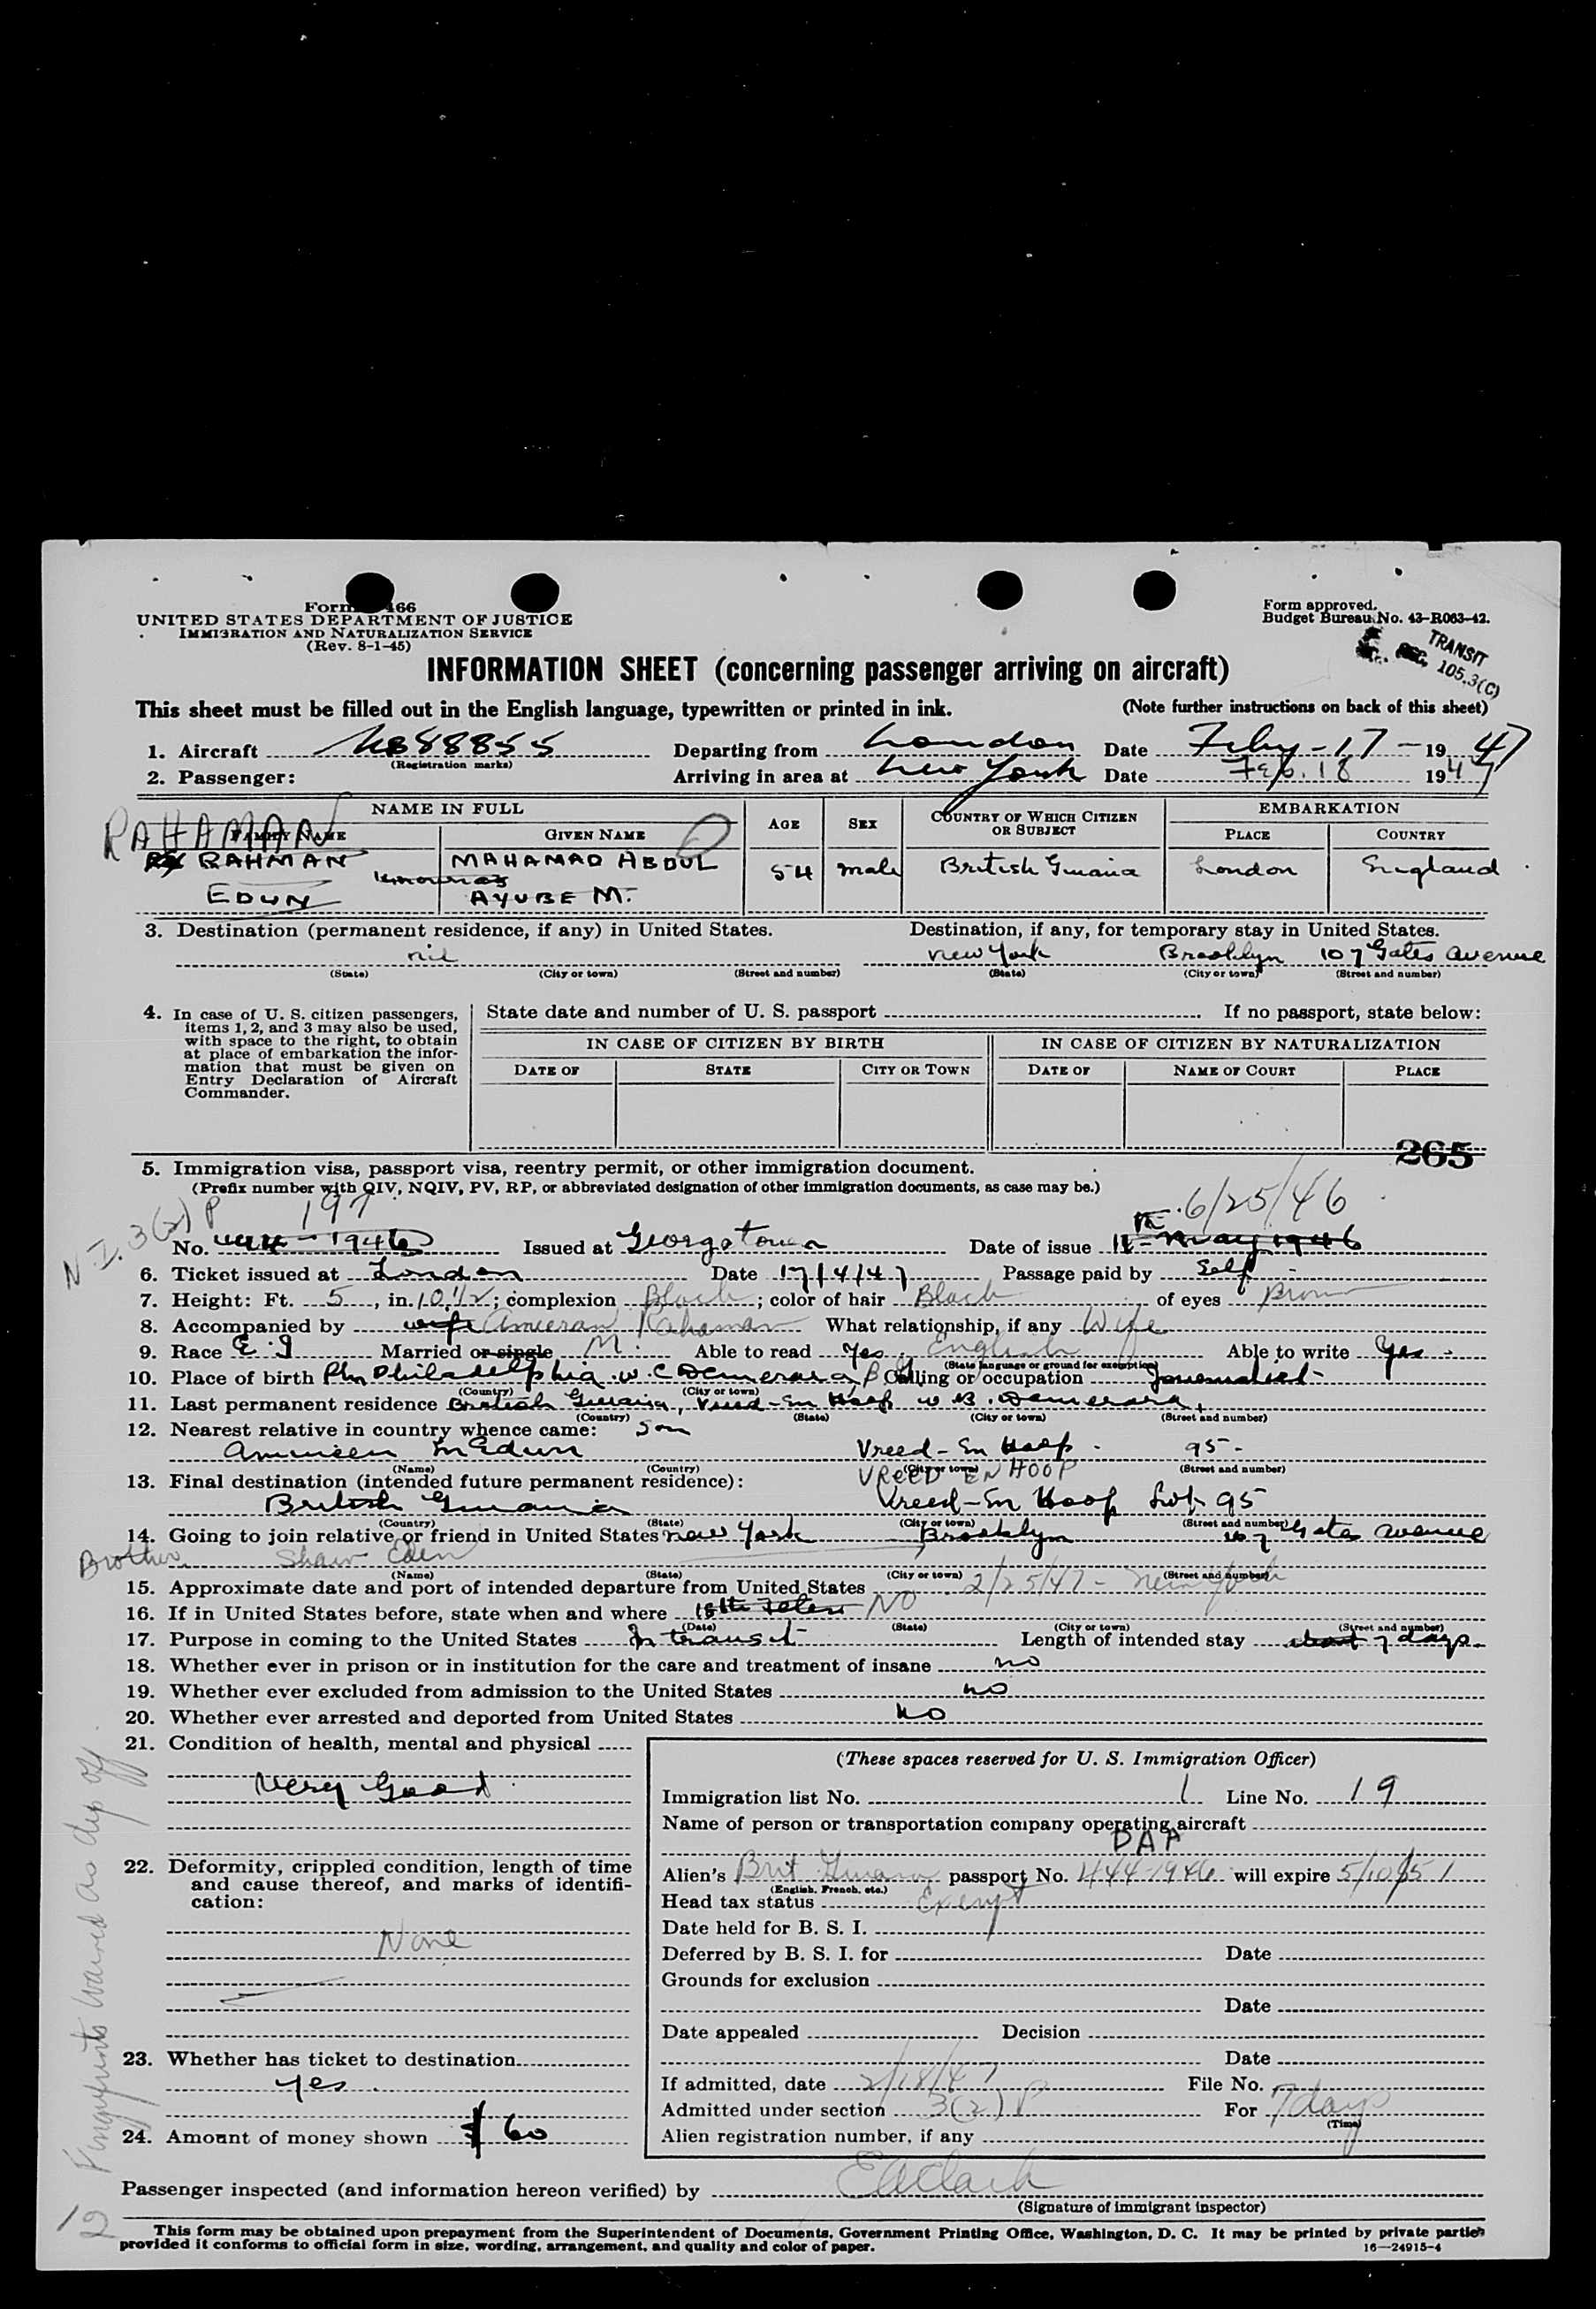 Form 466
UNITED STATES DEPARTMENT OF JUSTICE
IMMIGRATION AND NATURALIZATION SERVICE
(Rev. 8-1-45)
Form approved.
Budget Bureau No. 43-R063-42.
TRANSIT
REG. 105.3(C)
INFORMATION SHEET (concerning passenger arriving on aircraft)
This sheet must be filled out in the English language, typewritten or printed in ink. (Note further instructions on back of this sheet)
1. Aircraft 88855 Departing from London Date Feby-17-1947
(Registration marks)
2. Passenger: Arriving in area at New York Date Feb. 18 1947
NAME IN FULL AGE SEX COUNTRY OF WHICH CITIZEN OR SUBJECT EMBARKATION
FAMILY NAME GIVEN NAME PLACE COUNTRY
RAHAMAN
RAHMAN MAHAMAD ABDUL 54 male British Guiana London England
EDUN AYUBE M.
3. Destination (permanent residence, if any) in United States. Destination, if any, for temporary stay in United States.
nil New York Brooklyn 107 Gates Avenue
(State) (City or town) (Street and number) (State) (City or town) (Street and number)
4. In case of U. S. citizen passengers, items 1, 2, and 3 may also be used, with space to the right, to obtain at place of embarkation the information that must be given on Entry Declaration of Aircraft Commander.
State date and number of U. S. passport If no passport, state below:
IN CASE OF CITIZEN BY BIRTH IN CASE OF CITIZEN BY NATURALIZATION
DATE OF STATE CITY OR TOWN DATE OF NAME OF COURT PLACE
265
5. Immigration visa, passport visa, reentry permit, or other immigration document.
(Prefix number with QIV, NQIV, PV, RP, or abbreviated designation of other immigration documents, as case may be.)
N.I. 3(2) P 197 6/25/46
No. 444-1946 Issued at Georgetown Date of issue May 1946
6. Ticket issued at London Date 17/4/47 Passage paid by Self
7. Height: Ft. 5, in. 10 1/2; complexion Black; color of hair Black of eyes Brown
8. Accompanied by wife Ameeran Rahaman What relationship, if any Wife
9. Race E.I Married or single M. Able to read Yes English Able to write Yes
(State language or ground for exemption)
10. Place of birth Philadelphia W.C Demerara B G Calling or occupation Journalist
(Country) (City or town)
11. Last permanent residence British Guiana, Vreed-En Hoop W.B. Demerara
(Country) (State) (City or town) (Street and number)
12. Nearest relative in country whence came: Son
Ammeen M Edun Vreed-En Hoop 95-
(Name) (Country) (City or town) (Street and number)
13. Final destination (intended future permanent residence): VREED EN HOOP
British Guiana Vreed-En Hoop Lot 95
(Country) (State) (City or town) (Street and number)
14. Going to join relative or friend in United States New York Brooklyn 107 Gates Avenue
Brother Shaw Eden
(Name) (State) (City or town) (Street and number)
15. Approximate date and port of intended departure from United States 2/25/47 - New York
16. If in United States before, state when and where NO
(Date) (State) (City or town) (Street and number)
17. Purpose in coming to the United States In transit Length of intended stay about 7 days
18. Whether ever in prison or in institution for the care and treatment of insane no
19. Whether ever excluded from admission to the United States no
20. Whether ever arrested and deported from United States no
21. Condition of health, mental and physical
Very Good
22. Deformity, crippled condition, length of time and cause thereof, and marks of identification:
None
23. Whether has ticket to destination
yes
24. Amount of money shown $ 60
(These spaces reserved for U. S. Immigration Officer)
Immigration list No. 1 Line No. 19
Name of person or transportation company operating aircraft
PAA
Alien's Brit Guiana passport No. 444-1946 will expire 5/10/51
(English, French, etc.)
Head tax status Exempt
Date held for B. S. I.
Deferred by B. S. I. for Date
Grounds for exclusion
Date
Date appealed Decision
Date
If admitted, date 2/18/47 File No.
Admitted under section 3(2) P For 7 days
(Time)
Alien registration number, if any
Fingerprints waived as dip off
Passenger inspected (and information hereon verified) by E A Clark
(Signature of immigrant inspector)
This form may be obtained upon prepayment from the Superintendent of Documents, Government Printing Office, Washington, D. C. It may be printed by private parties
provided it conforms to official form in size, wording, arrangement, and quality and color of paper. 16—24915-4